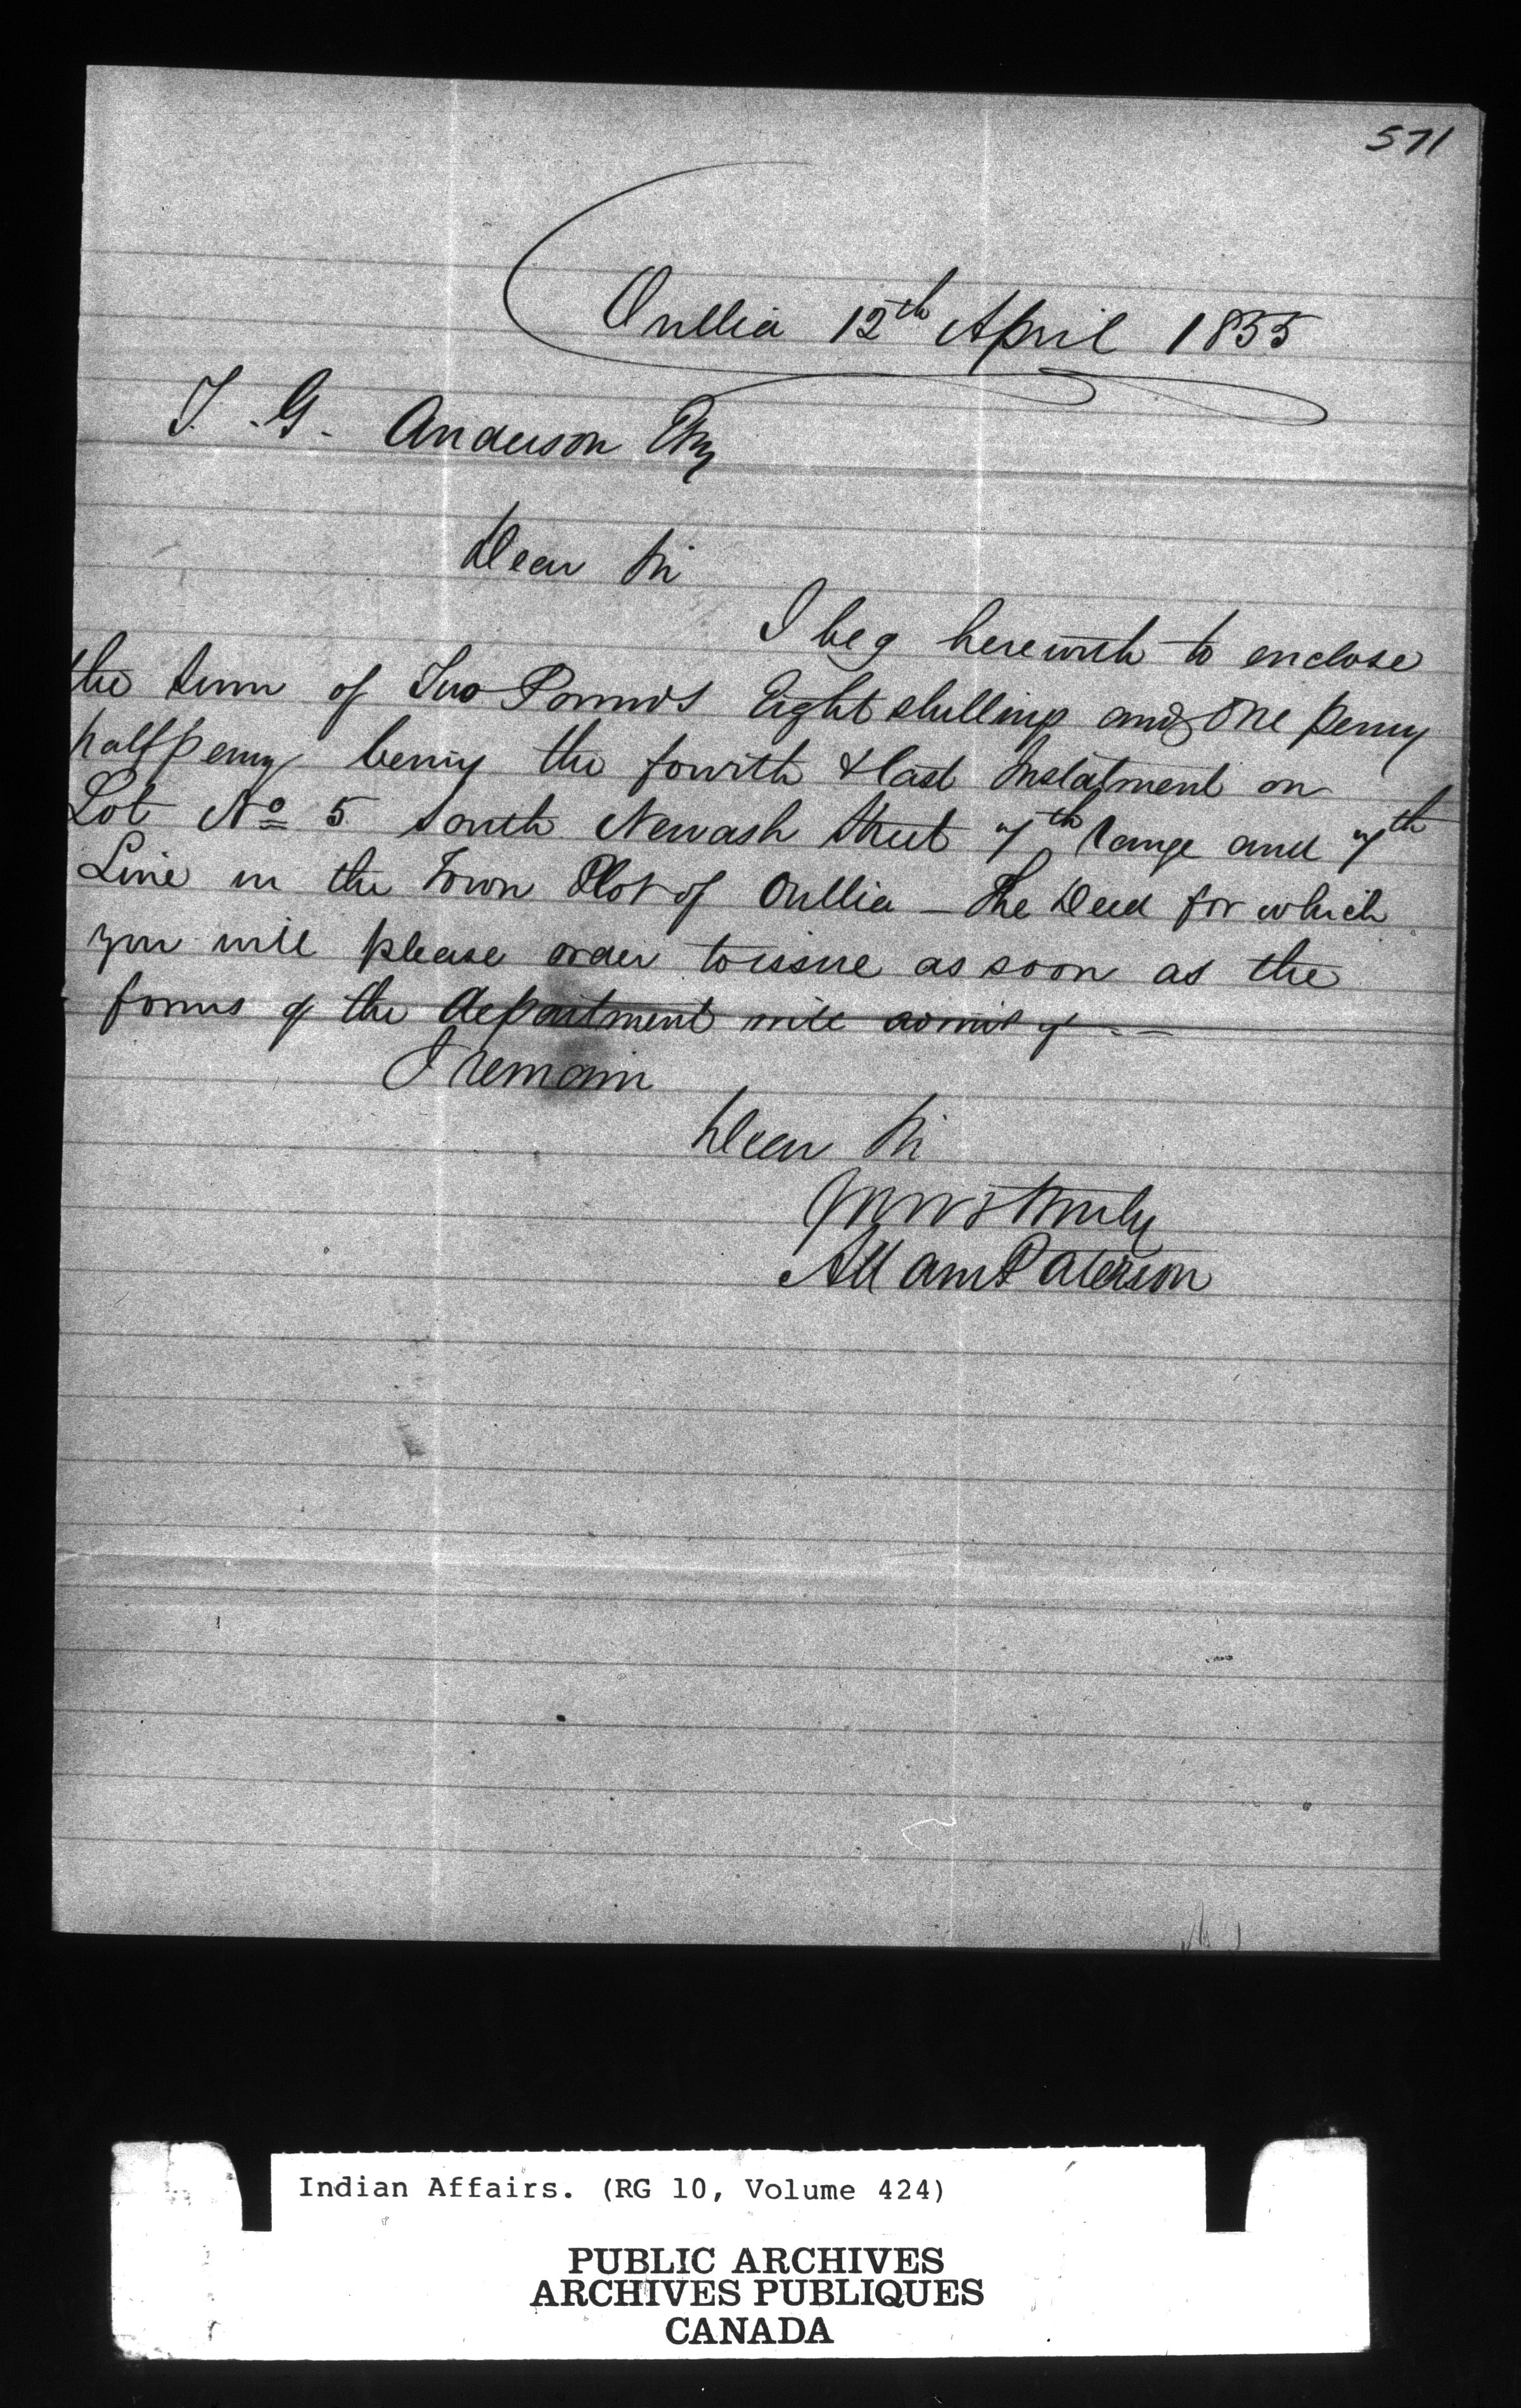 571
Orillia 12th April 1855
T. G. Anderson Esq
Dear Sir
I beg herewith to enclose
the Sum of Two Pounds Eight shillings and One penny
halfpenny being the fourth & last Instalment on
Lot No 5 South Newash Street 7th range and 7th
Line in the Town Plot of Orillia – The Deed for which
you will please order to issue as soon as the
forms of the department will admit of –
I remain
Dear Sir
Yours truly
Adam Paterson
Indian Affairs. (RG 10, Volume 424)
PUBLIC ARCHIVES
ARCHIVES PUBLIQUES
CANADA